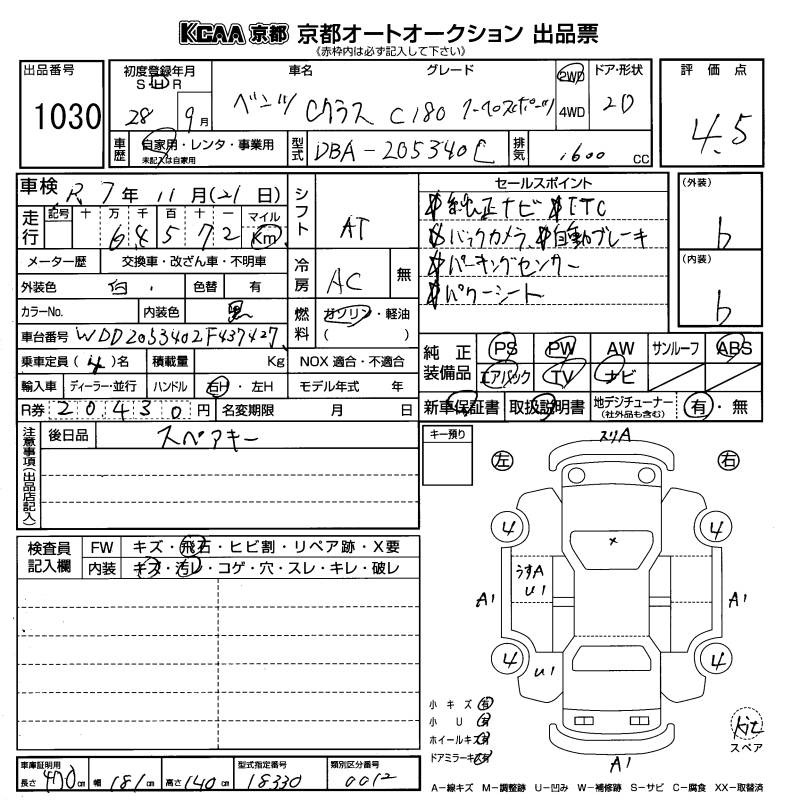 KCAA 京都 京都オートオークション 出品票
《赤枠内は必ず記入して下さい》
出品番号
1030
初度登録年月
S・H・R
28 9月
車名 グレード
ベンツ Cクラス C180 クーペスポーツ
2WD
4WD
ドア・形状
2D
評価点
4.5
車歴
自家用・レンタ・事業用
未記入は自家用
型式
DBA-205340C
排気
1600 CC
車検 R 7年 11月(21日)
走行
記号 十 万 千 百 十 一 マイル
6 4 5 7 2 Km
メーター歴 交換車・改ざん車・不明車
外装色 白 色替 有
カラーNo. 内装色 黒
車台番号 WDD2053402F437427
乗車定員(4)名 積載量 Kg
輸入車 ディーラー・並行 ハンドル 右H・左H
R券 20430円 名変期限 月 日
シフト AT
冷房 AC 無
燃料 ガソリン・軽油
( )
NOX 適合・不適合
モデル年式 年
セールスポイント
純正ナビ ETC
バックカメラ 自動ブレーキ
パーキングセンサー
パワーシート
(外装)
b
(内装)
b
純正装備品
PS PW AW サンルーフ ABS
エアバック TV ナビ
新車保証書 取扱説明書 地デジチューナー
(社外品も含む)
有・無
注意事項(出品店記入)
後日品 スペアキー
キー預り
検査員記入欄
FW キズ・飛石・ヒビ割・リペア跡・X要
内装 キズ・汚レ・コゲ・穴・スレ・キレ・破レ
スリA
左 右
4 4
x
うすA
U1
A1 A1
4 4
U1
A1
小キズ 有
小U 有
ホイールキズ 有
ドアミラーキズ 有
kit
スペア
車庫証明用
長さ 470cm 幅 181cm 高さ 140cm
型式指定番号
18330
類別区分番号
0012
A−線キズ M−調整跡 U−凹み W−補修跡 S−サビ C−腐食 XX−取替済